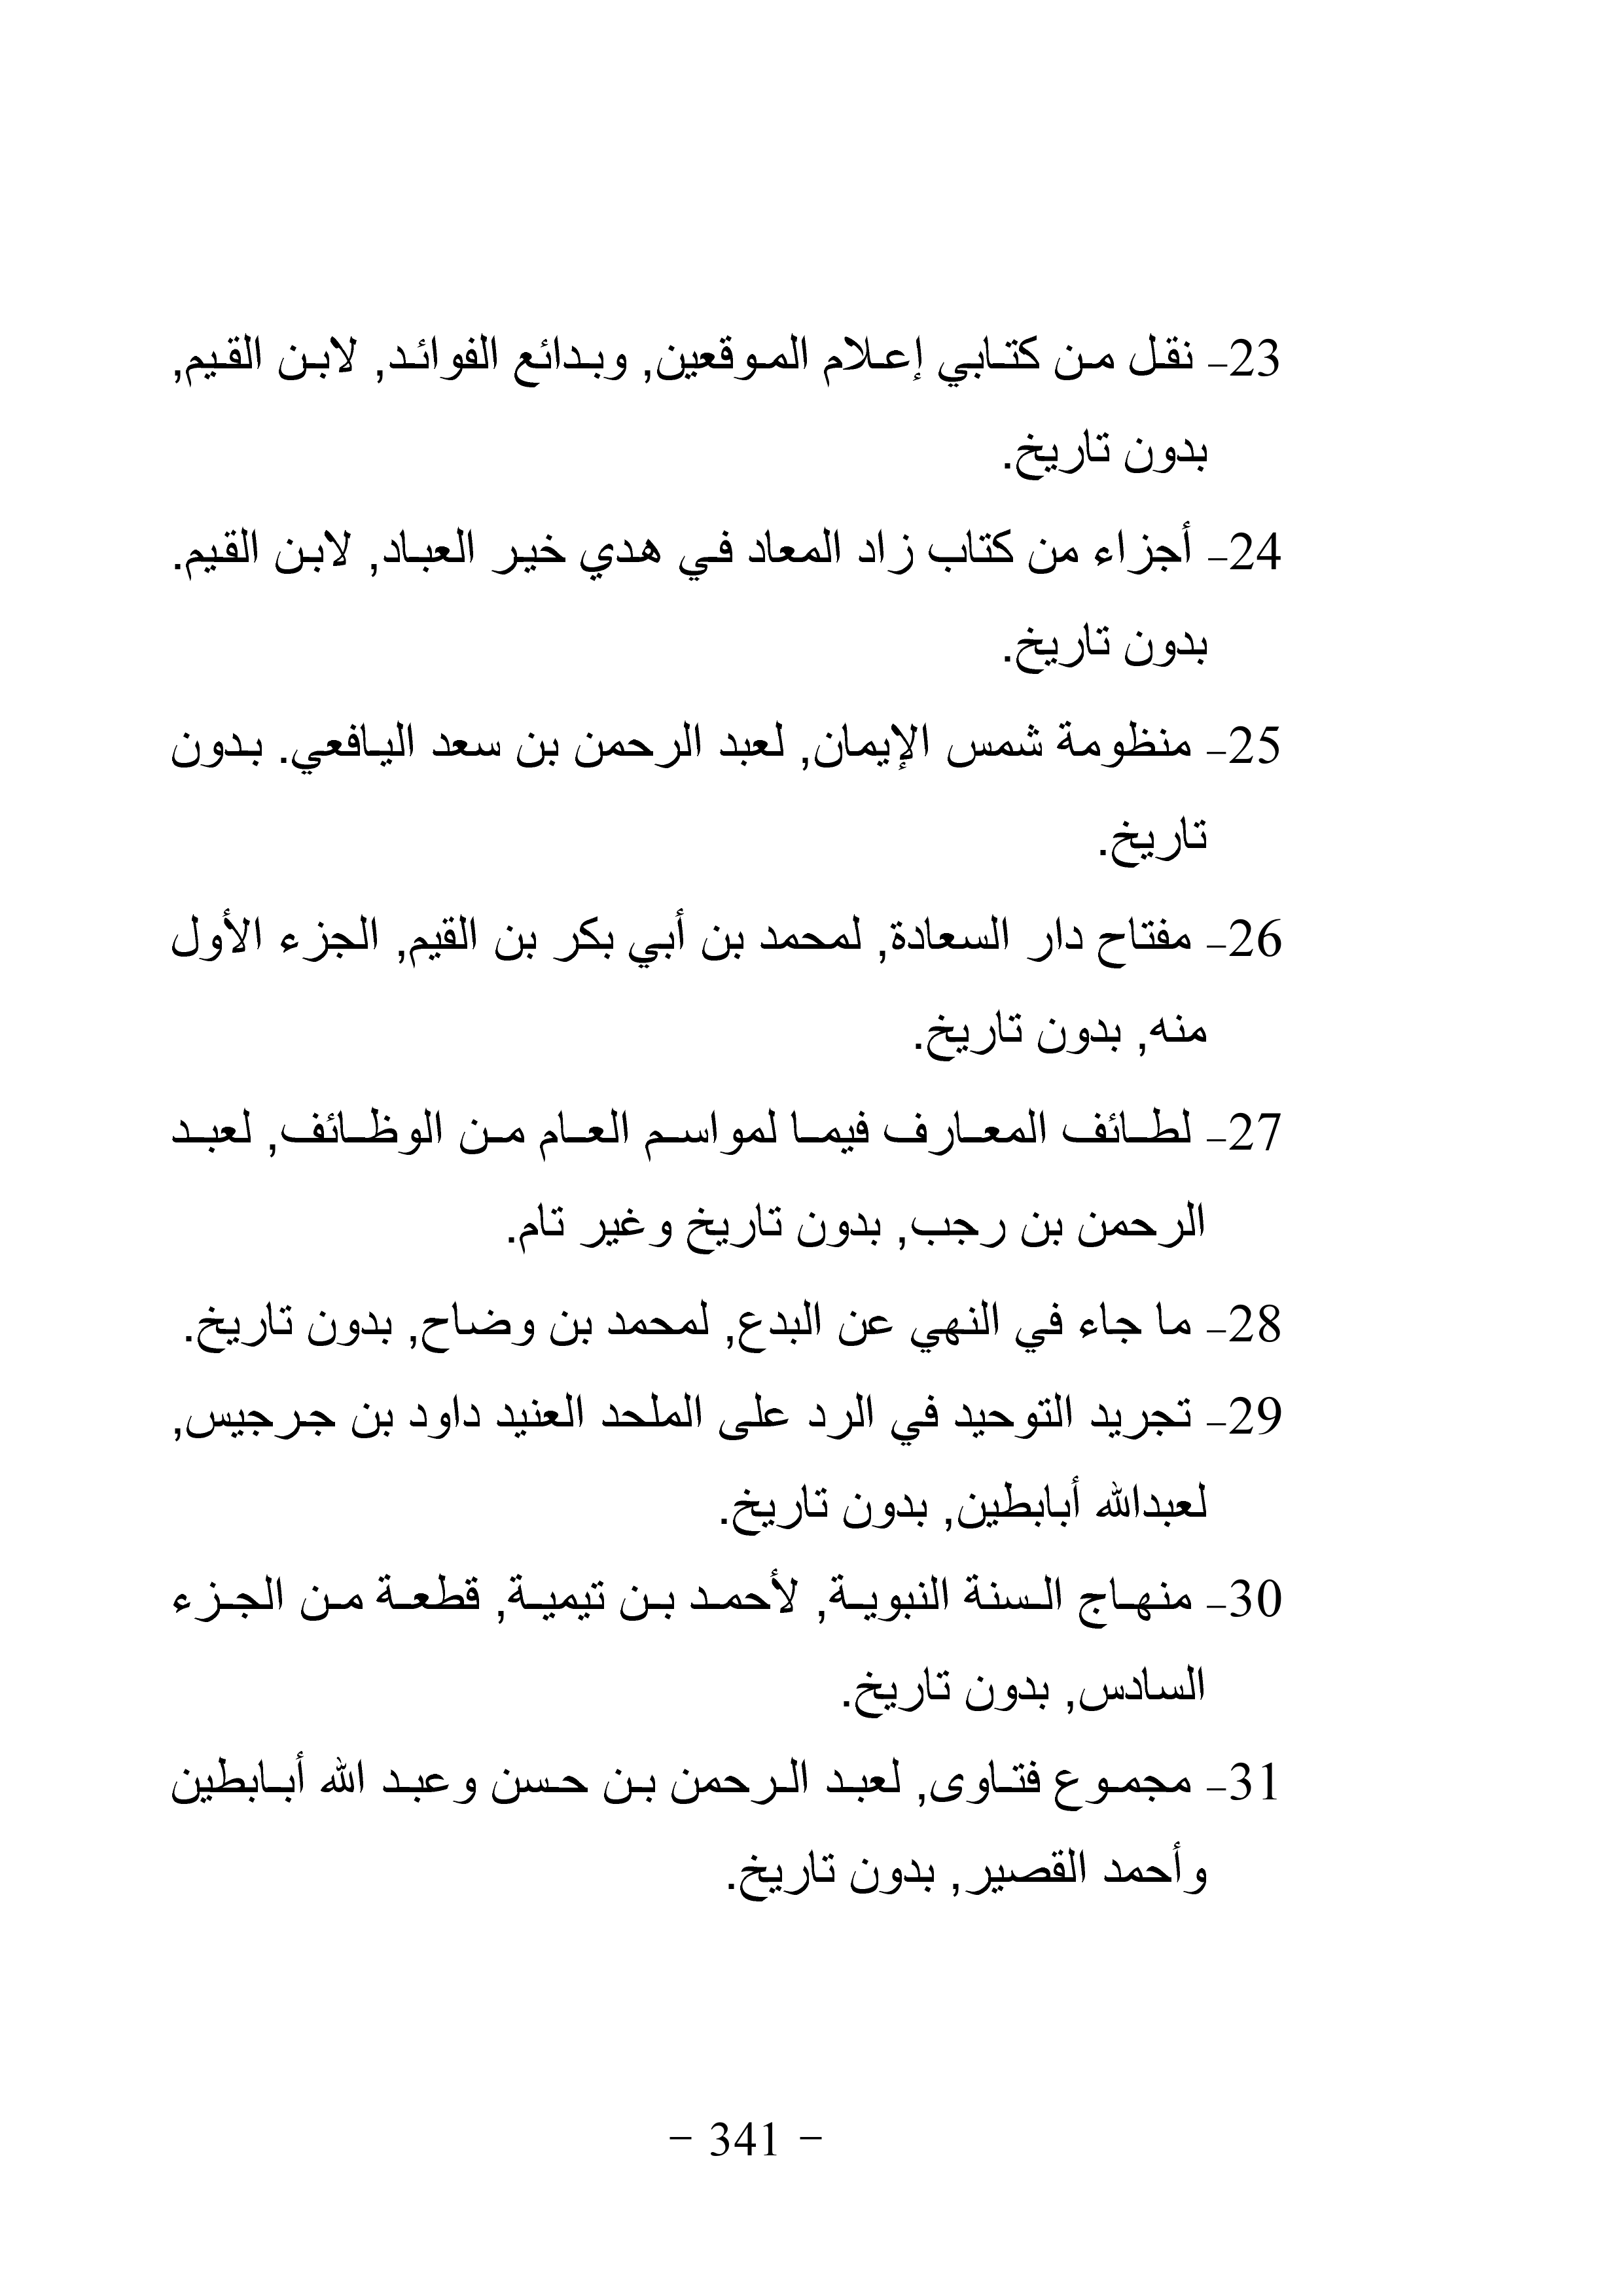 23- نقل من كتابي إعلام الموقعين, وبدائع الفوائد, لابن القيم,
بدون تاريخ.
24- أجزاء من كتاب زاد المعاد في هدي خير العباد, لابن القيم.
بدون تاريخ.
25- منظومة شمس الإيمان, لعبد الرحمن بن سعد اليافعي. بدون
تاريخ.
26- مفتاح دار السعادة, لمحمد بن أبي بكر بن القيم, الجزء الأول
منه, بدون تاريخ.
27- لطائف المعارف فيما لمواسم العام من الوظائف, لعبد
الرحمن بن رجب, بدون تاريخ وغير تام.
28- ما جاء في النهي عن البدع, لمحمد بن وضاح, بدون تاريخ.
29- تجريد التوحيد في الرد على الملحد العنيد داود بن جرجيس,
لعبدالله أبابطين, بدون تاريخ.
30- منهاج السنة النبوية, لأحمد بن تيمية, قطعة من الجزء
السادس, بدون تاريخ.
31- مجموع فتاوى, لعبد الرحمن بن حسن وعبد الله أبابطين
وأحمد القصير, بدون تاريخ.
- 341 -